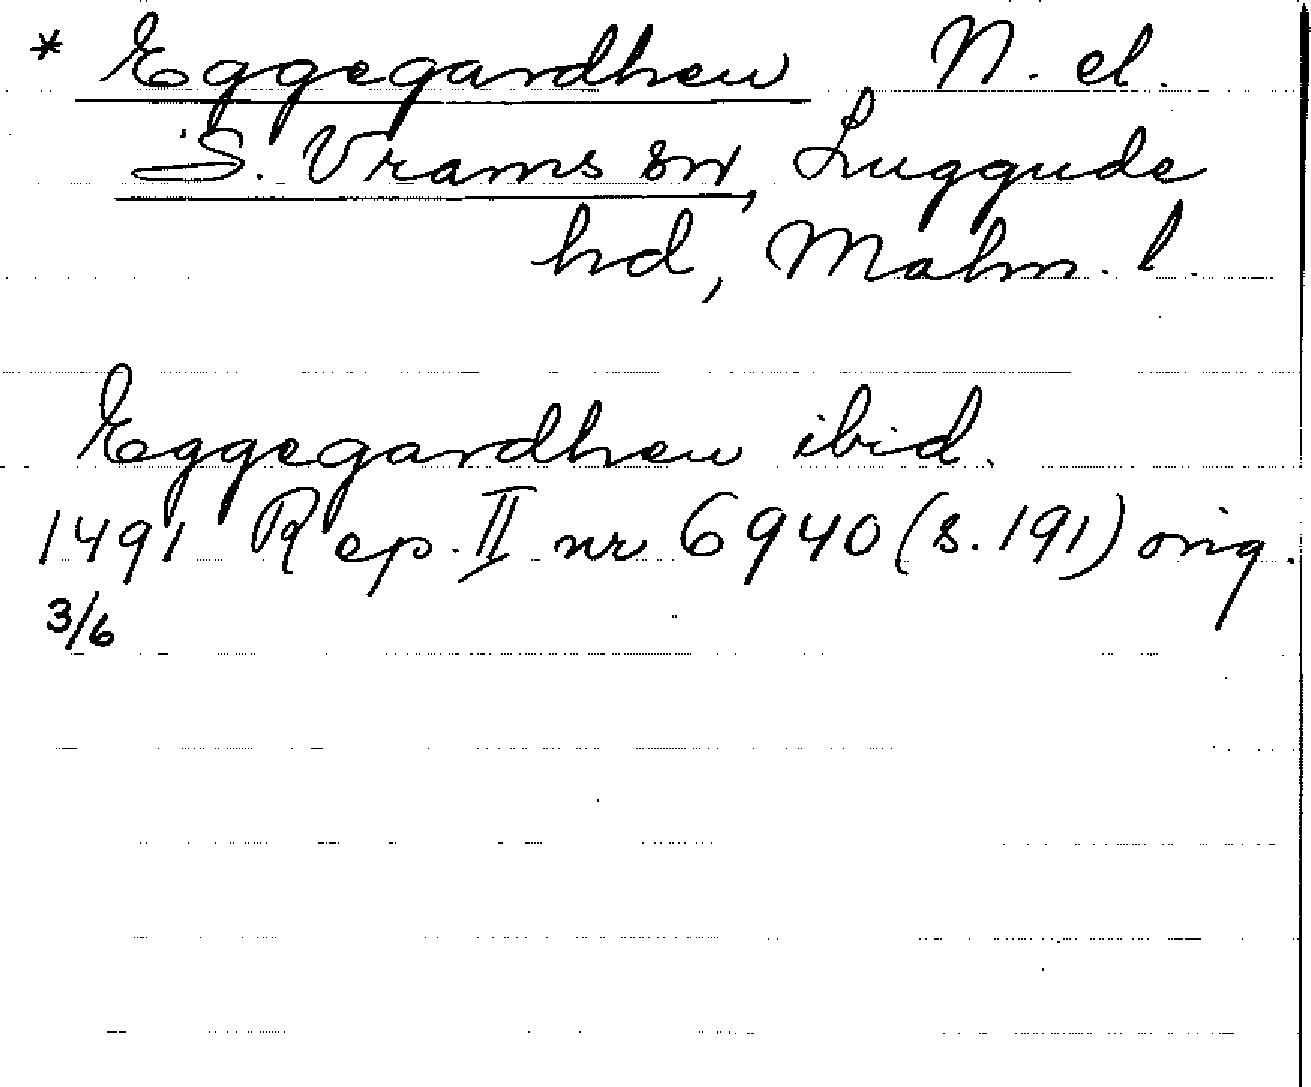 * Eggegardhen N. el.
S. Vrams sn, Luggude
hd, Malm. l.
Eggegardhen ibid.
1491 Rep. II nr 6940 (s. 191) orig.
3/6